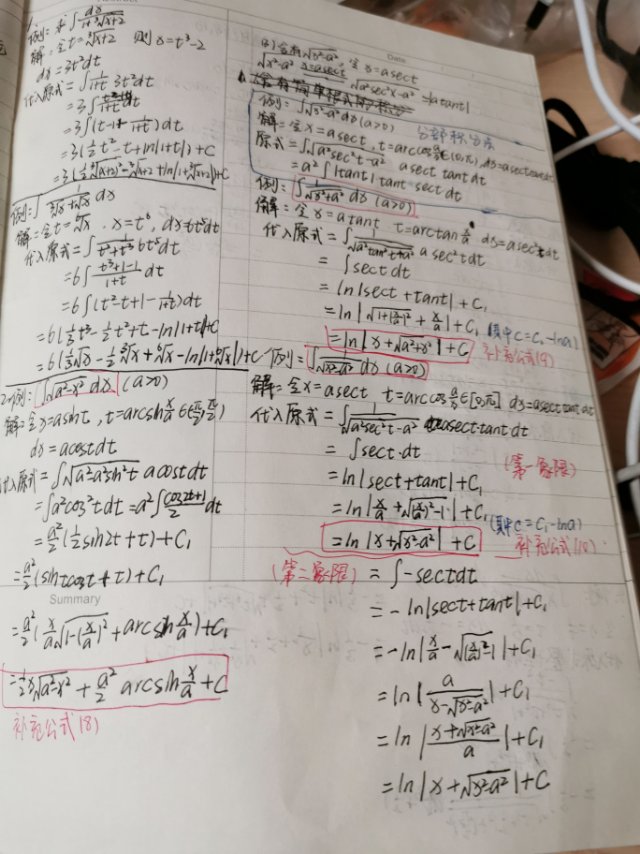 例: 求∫dx/(1+∛(x+2))
解: 令t=∛(x+2) 则x=t³-2
dx=3t²dt
代入原式=∫1/(1+t) 3t²dt
=3∫(t-1+1/(1+t))dt
=3(½t²-t+ln|1+t|)+C
例: ∫1/(∛x+√x) dx
解: 令t=⁶√x, x=t⁶, dx=6t⁵dt
代入原式=∫1/(t²+t³) 6t⁵dt
=6∫(t³+1-1)/(1+t) dt
=6∫(t²-t+1-1/(1+t))dt
=6(⅓t³-½t²+t-ln|1+t|)+C
=6(⅓√x-½∛x+⁶√x-ln|1+⁶√x|)+C
例: ∫√(a²-x²) dx (a>0)
解: 令x=asint, t=arcsin x/a
dx=acostdt
代入原式=∫√(a²-a²sin²t) acostdt
=∫a²cos²tdt=a²∫(cos2t+1)/2 dt
=a²/2(½sin2t+t)+C₁
=a²/2(sintcost+t)+C₁
Summary
=a²/2(x/a√(1-(x/a)²)+arcsin x/a)+C₁
=½x√(a²-x²)+a²/2 arcsin x/a+C
补充公式(8)
Date
含有√(x²-a²), 令x=asect
√(x²-a²) x=asect √(a²sec²x-a²)=|atant|
例: ∫√(x²-a²)dx(a>0) 分部积分法
解: 令x=asect, dx=asecttantdt
原式=∫√(a²sec²t-a²) asect tantdt
=a²∫|tant|tant sectdt
例: ∫1/√(x²+a²) dx (a>0)
解: 令x=atant t=arctan x/a dx=asec²tdt
代入原式=∫1/√(a²tan²t+a²) asec²tdt
=∫sectdt
=ln|sect+tant|+C₁
=ln|√(1+(x/a)²)+x/a|+C₁ (其中C=C₁-lna)
=ln|x+√(a²+x²)|+C 补充公式(9)
例: ∫1/√(x²-a²) dx (a>0)
解: 令x=asect t=arccos a/x∈[0,π] dx=asect tantdt
代入原式=∫1/√(a²sec²t-a²) asect·tantdt
=∫sectdt (第一象限)
=ln|sect+tant|+C₁
=ln|x/a+√((x/a)²-1)|+C₁ (其中C=C₁-lna)
=ln|x+√(x²-a²)|+C 补充公式(10)
(第二象限) =∫-sectdt
=-ln|sect+tant|+C₁
=-ln|x/a-√((x/a)²-1)|+C₁
=ln|a/(x-√(x²-a²))|+C₁
=ln|(x+√(x²-a²))/a|+C₁
=ln|x+√(x²-a²)|+C